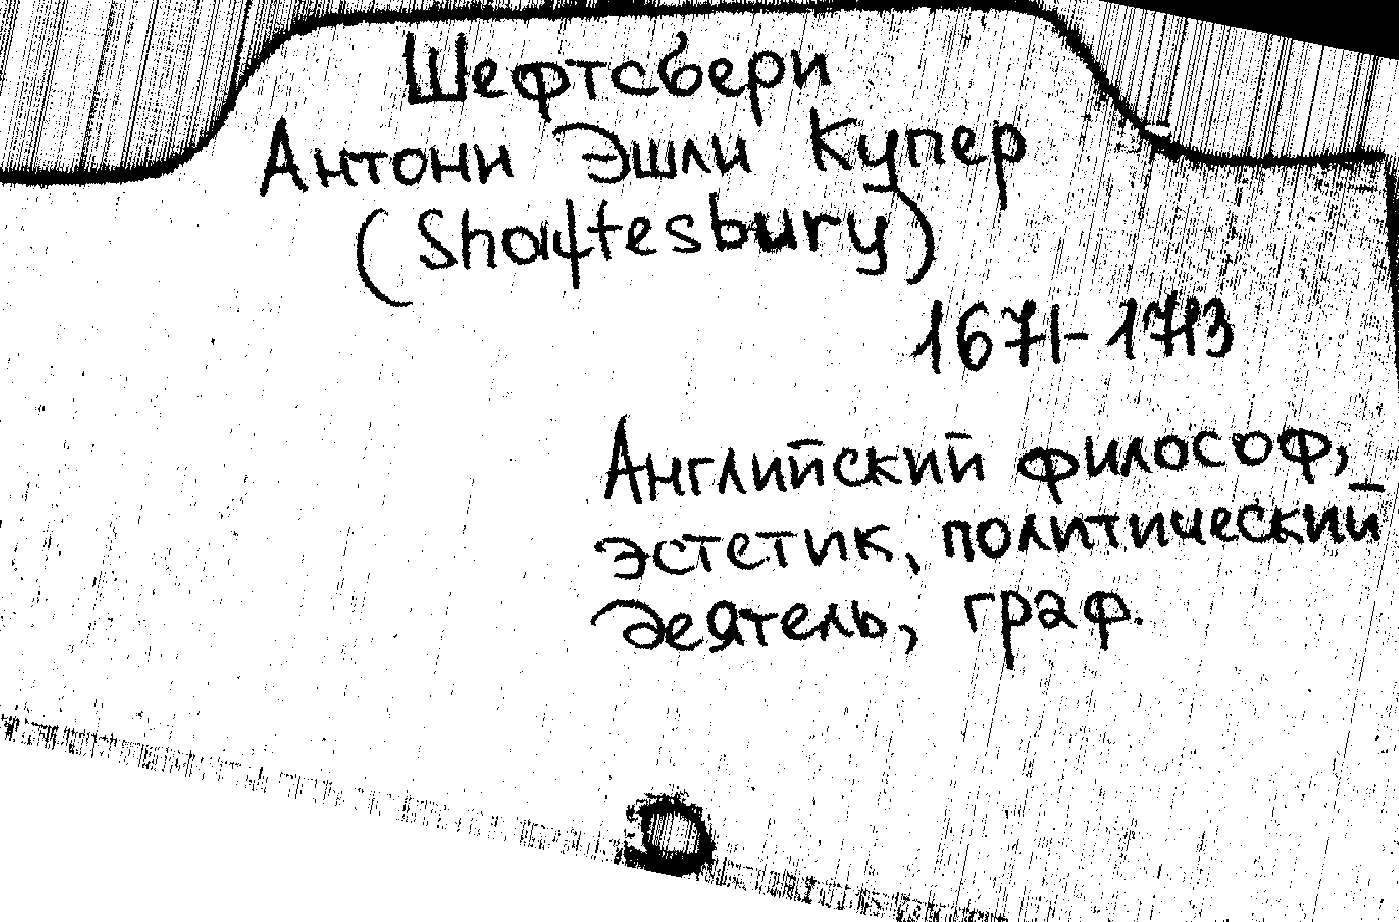 Шефтсбери
Антони Эшли Купер
(Shaftesbury)
1671-1713
Английский философ,
эстетик, политический
деятель, граф.